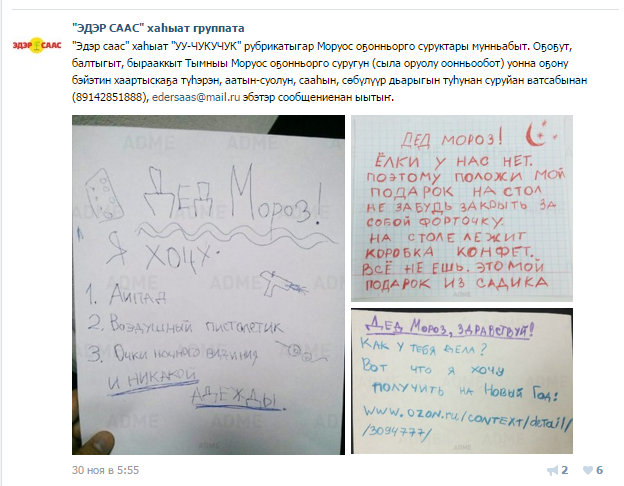 "ЭДЭР СААС" хаһыат группата
ЭДЭР СААС
"Эдэр саас" хаһыат "УУ-ЧУКУЧУК" рубрикатыгар Моруос оҕонньорго суруктары мунньабыт. Оҕоҕут,
балтыгыт, бырааккыт Тымныы Моруос оҕонньорго суругун (сыла оруолу оонньообот) уонна оҕону
бэйэтин хаартыскаҕа түһэрэн, аатын-суолун, сааһын, сөбүлүүр дьарыгын туһунан суруйан ватсабынан
(89142851888), edersaas@mail.ru эбэтэр сообщениенан ыытыҥ.
ADME
Дед Мороз!
Я хочу.
ADME
1. Аипад
2. Воздушный пистолетик
3. Очки ночного визиния
И НИКАКОЙ
АДЕЖДЫ.
ADME
ДЕД МОРОЗ!
ЁЛКИ У НАС НЕТ.
ПОЭТОМУ ПОЛОЖИ МОЙ
ПОДАРОК НА СТОЛ
НЕ ЗАБУДЬ ЗАКРЫТЬ ЗА
СОБОЙ ФОРТОЧКУ.
НА СТОЛЕ ЛЕЖИТ
КОРОБКА КОНФЕТ.
ВСЁ НЕ ЕШЬ. ЭТО МОЙ
ПОДАРОК ИЗ САДИКА
ADME
ДЕД МОРОЗ, ЗДРАВСТВУЙ!
КАК У ТЕБЯ ДЕЛА?
ВОТ ЧТО Я ХОЧУ
ПОЛУЧИТЬ НА НОВЫЙ ГОД:
WWW.OZON.RU/CONTEXT/detail/
/3094777/
ADME
30 ноя в 5:55
2
6